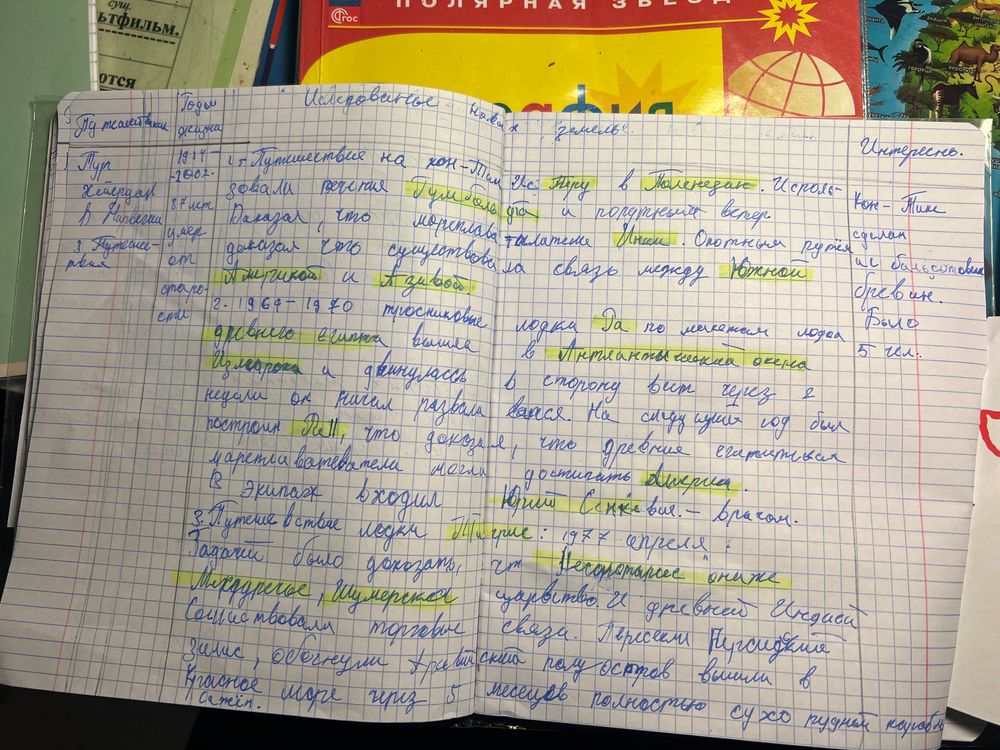 сущ.
льтфильм.
ются
ФГОС
ПОЛЯРНАЯ ЗВЕЗД
графия
Путешественник
Годы жизни
Иследованье новых земель.
Интересн.
1 Тур
Хейердал
в Норвегии
3. Путешес-
твия
1914 –
-2002.
87 лет
умер
от
старо-
сти
1 – Путишествие на кон-Тики Из: Перу в Полинезию. Исполь-
зовали течения Гумбольдта и попутный ветер.
Доказал, что мореплава
Инки.
доказал что существовала связь между Южной
Америкой и Азией.
2. 1969–1970 тросниковые лодки Ра по макетам лодок
древнего египта вышла в океана
и двинулась в сторону через 2
недели он начал развали вался. На следующий год был
построин РаII, что доказал, что древние египтяни
могли достигать Америки.
В экипаж входил Юрий Сенкевич. – врачом.
3. Путешевствие лодки Тигрис: 1977 апреля:
Задачей было доказать, чт Месопотамие они же
Междуречье, Шумерское царьство И древней Индией
Сощиствовали торговые связи. Пересекли Персидский
Залис, обогнули Аравийский полуостров вышли в
Красное море через 5 месецов полностью
Сажен.
Кон-Тики
сделан
ис бальсотовых
бревин.
Было
5 чел.